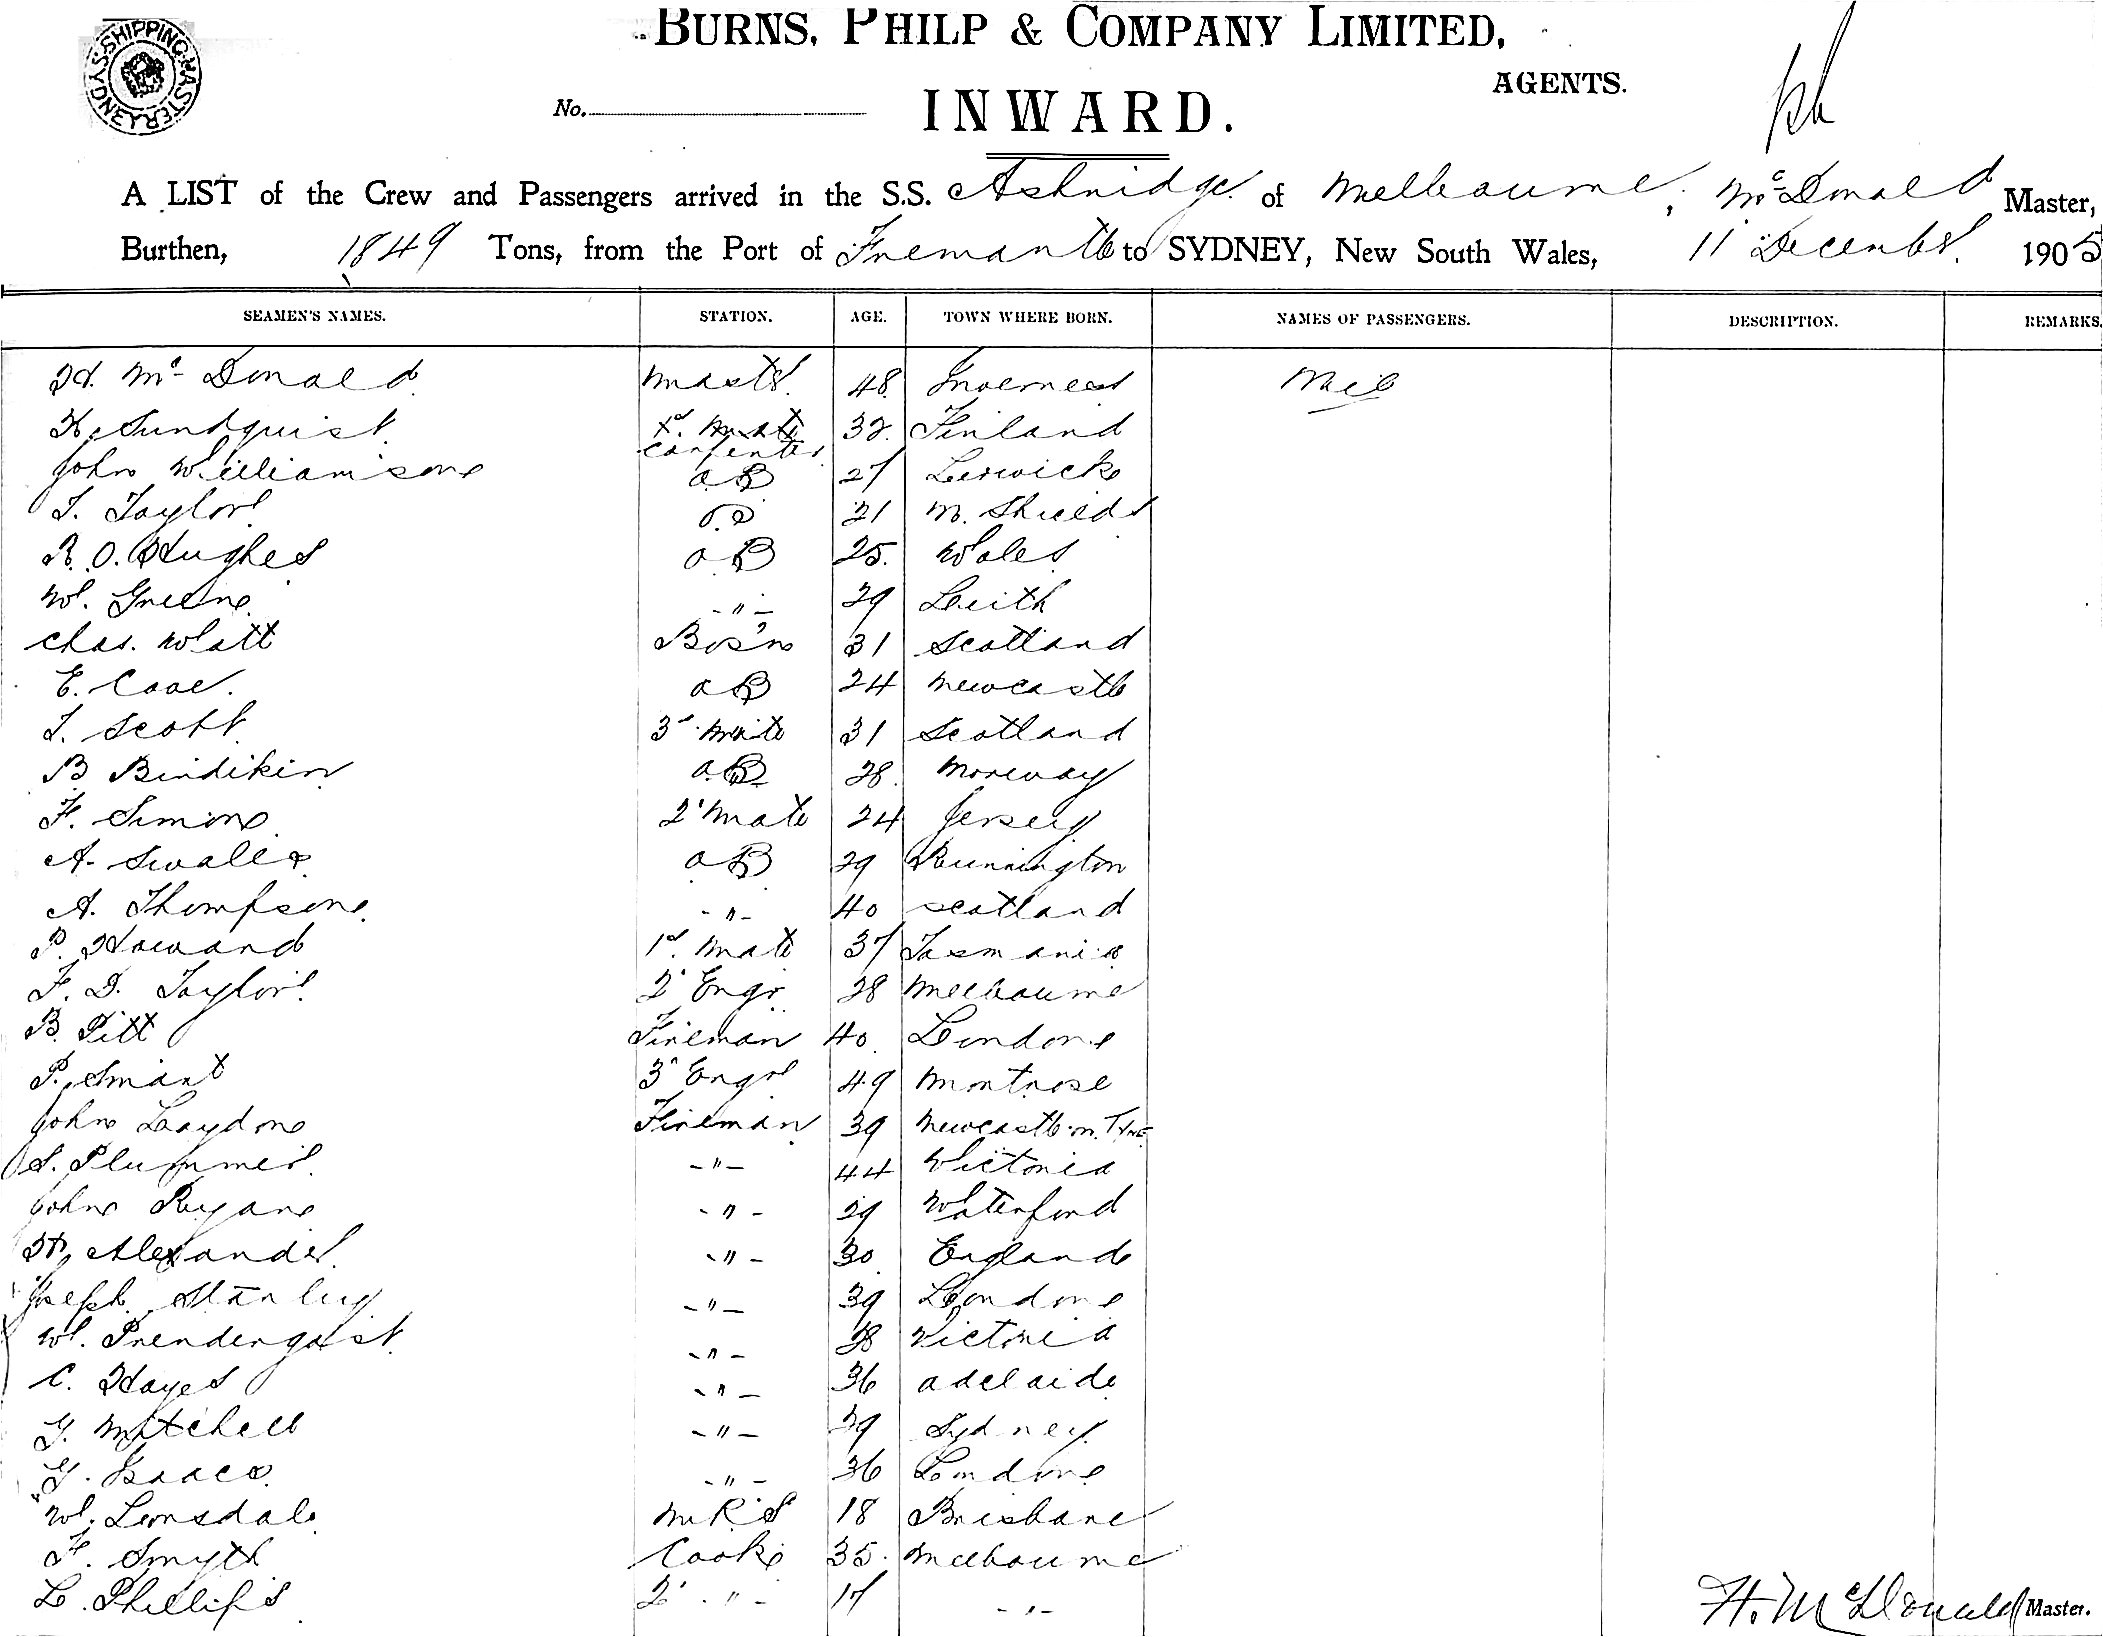 SHIPPING MASTER SYDNEY
BURNS, PHILP & COMPANY LIMITED,
AGENTS.
No.
INWARD.
A LIST of the Crew and Passengers arrived in the S.S. Ashridge of Melbourne, McDonald Master,
Burthen, 1849 Tons, from the Port of Fremantle to SYDNEY, New South Wales, 11 December 1905
SEAMEN'S NAMES. STATION. AGE. TOWN WHERE BORN. NAMES OF PASSENGERS. DESCRIPTION. REMARKS
H. McDonald Master 48 Inverness
H. Sundquist 1st Mate Carpenter 32 Finland
John Williamson AB 27 Lerwick
T. Taylor OS 21 N. Shields
R. O. Hughes AB 25 Wales
W. Greene -"- 29 Leith
Chas. Watt Bos'n 31 Scotland
E. AB 24 Newcastle
T. Scott 3d Mate 31 Scotland
B Bindikin AB 28 Norway
F. Simon 2d Mate 24 Jersey
A. AB 29
A. Thompson -"- 40 Scotland
P. Howard 1st Mate 37 Tasmania
F. D. Taylor 2d Engr 28 Melbourne
B. Pitt Fireman 40 London
P. Smart 3d Engr 49 Montrose
John Laydon Fireman 39 Newcastle on Tyne
S. Plummer -"- 44 Victoria
John Ryan -"- 29 Waterford
H. Alexander -"- 30 England
Joseph Stanley -"- 39 London
W. Prendergast -"- 28 Victoria
C. Hayes -"- 36 Adelaide
G. Mitchell -"- 29 Sydney
G. Isaacs -"- 36 London
W. Lonsdale M.R.S 18 Brisbane
F. Smyth Cook 35 Melbourne
L. Phillips 2d -"- 17 -"-
H. McDonald Master.